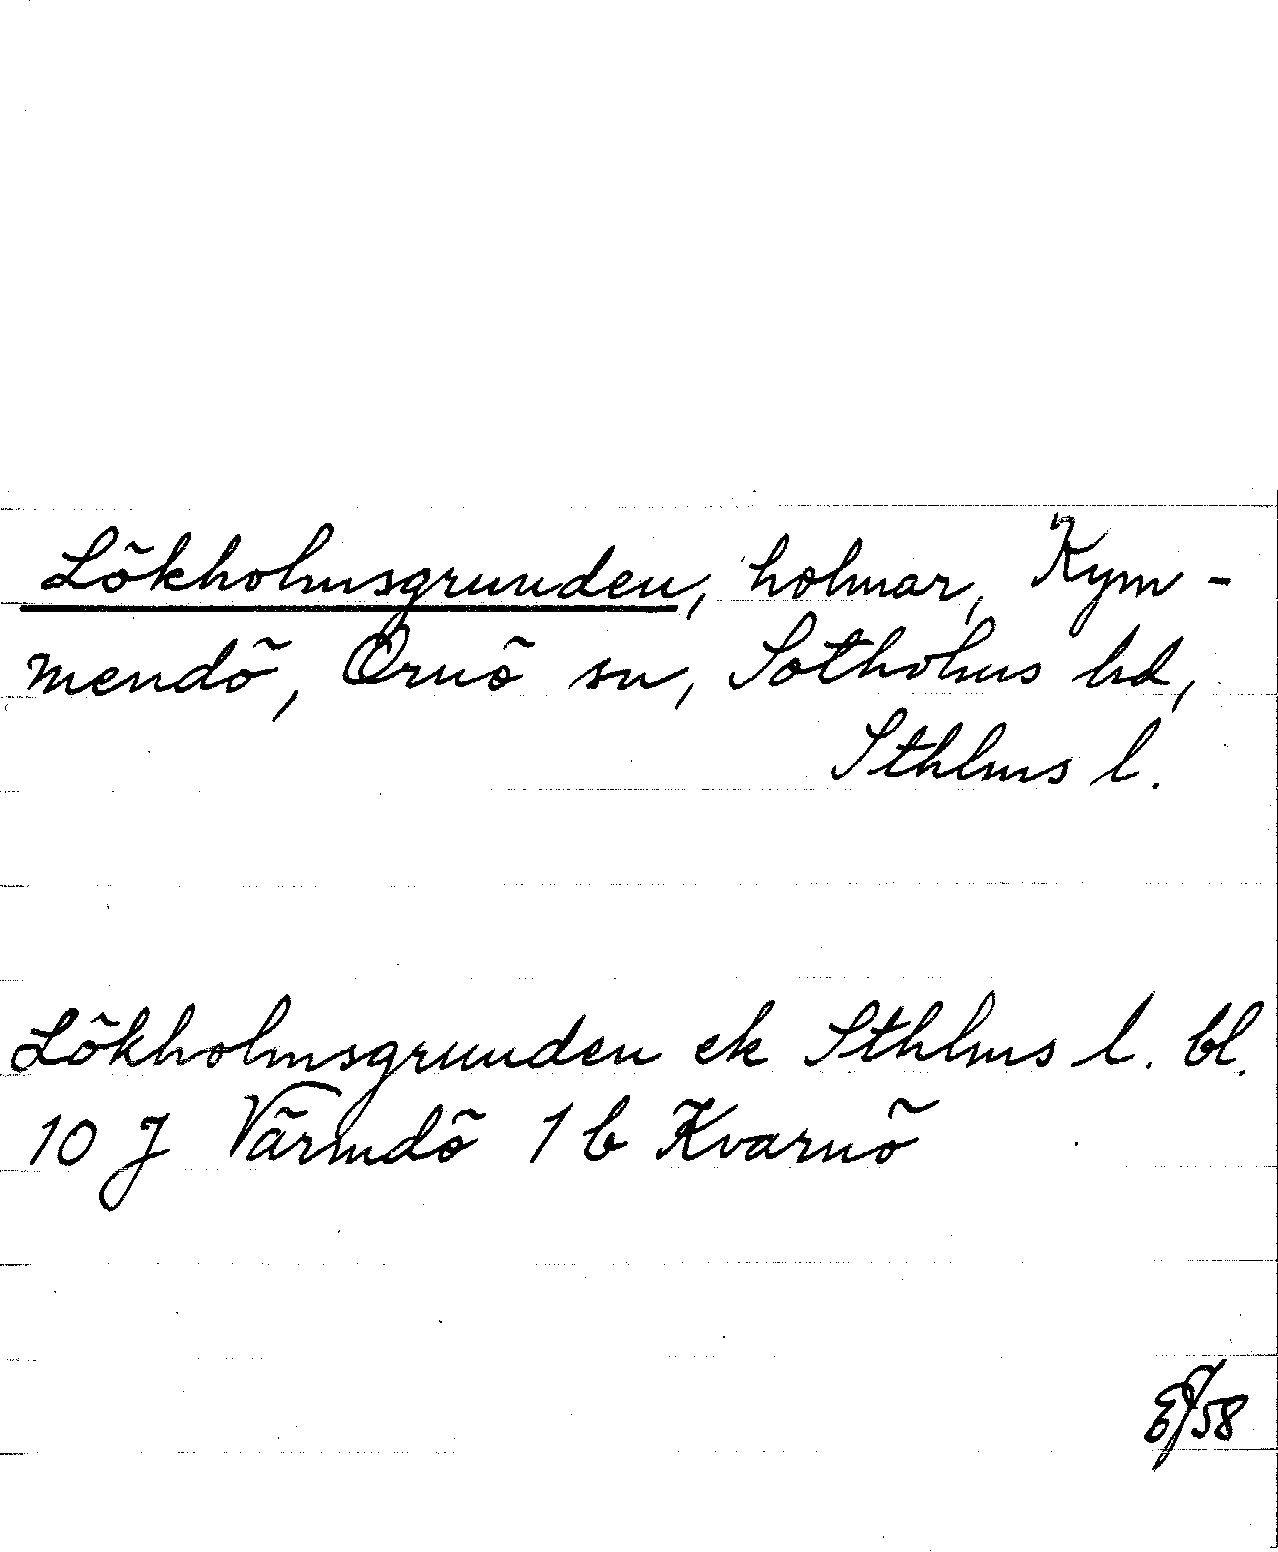 Lökholmsgrunden, holmar, Kym-
mendö, Ornö sn, Sotholms hd,
Sthlms l.
Lökholmsgrunden ek Sthlms l. bl.
10 J Värmdö 1 b Kvarnö
58